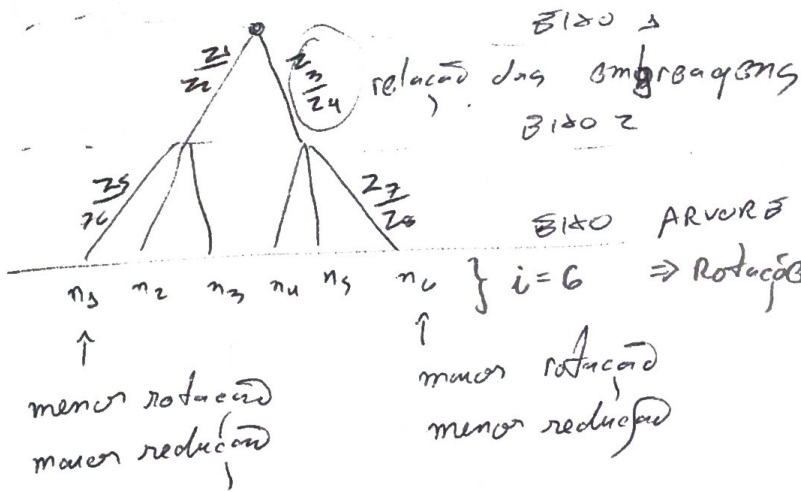 EIXO 1
Z1/Z2 Z3/Z4 relação das engrenagens
EIXO 2
Z5/Z6 Z7/Z8
EIXO ARVORE
n1 n2 n3 n4 n5 n6 } i=6 ⇒ Rotaçõe
↑ ↑
menor rotação maior rotação
maior redução menor redução